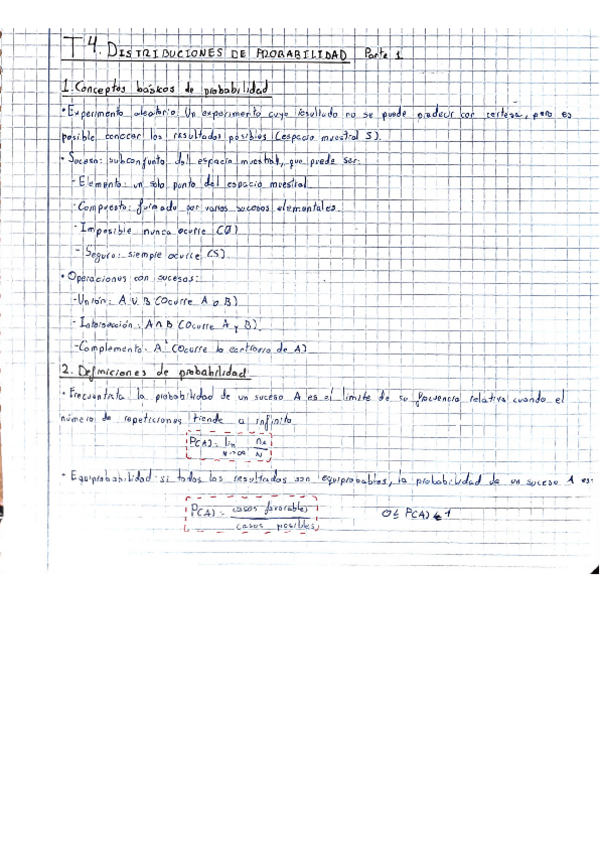 T4. DISTRIBUCIONES DE PROBABILIDAD Parte 1
1. Conceptos básicos de probabilidad
• Experimento aleatorio: Un experimento cuyo resultado no se puede predecir con certeza, pero es
posible conocer los resultados posibles (espacio muestral S).
• Suceso: subconjunto del espacio muestral, que puede ser:
- Elemento: un solo punto del espacio muestral
- Compuesto: formado por varios sucesos elementales.
- Imposible nunca ocurre (Ø)
- Seguro: siempre ocurre (S).
• Operaciones con sucesos:
- Unión: A ∪ B (Ocurre A o B)
- Intersección: A ∩ B (Ocurre A y B).
- Complemento: A' (Ocurre lo contrario de A)
2. Definiciones de probabilidad
• Frecuentista la probabilidad de un suceso A es el límite de su frecuencia relativa cuando el
número de repeticiones tiende a infinito
P(A) = lim N→∞ nA/N
• Equiprobabilidad si todos los resultados son equiprobables, la probabilidad de un suceso A es:
P(A) = casos favorables / casos posibles 0 ≤ P(A) ≤ 1